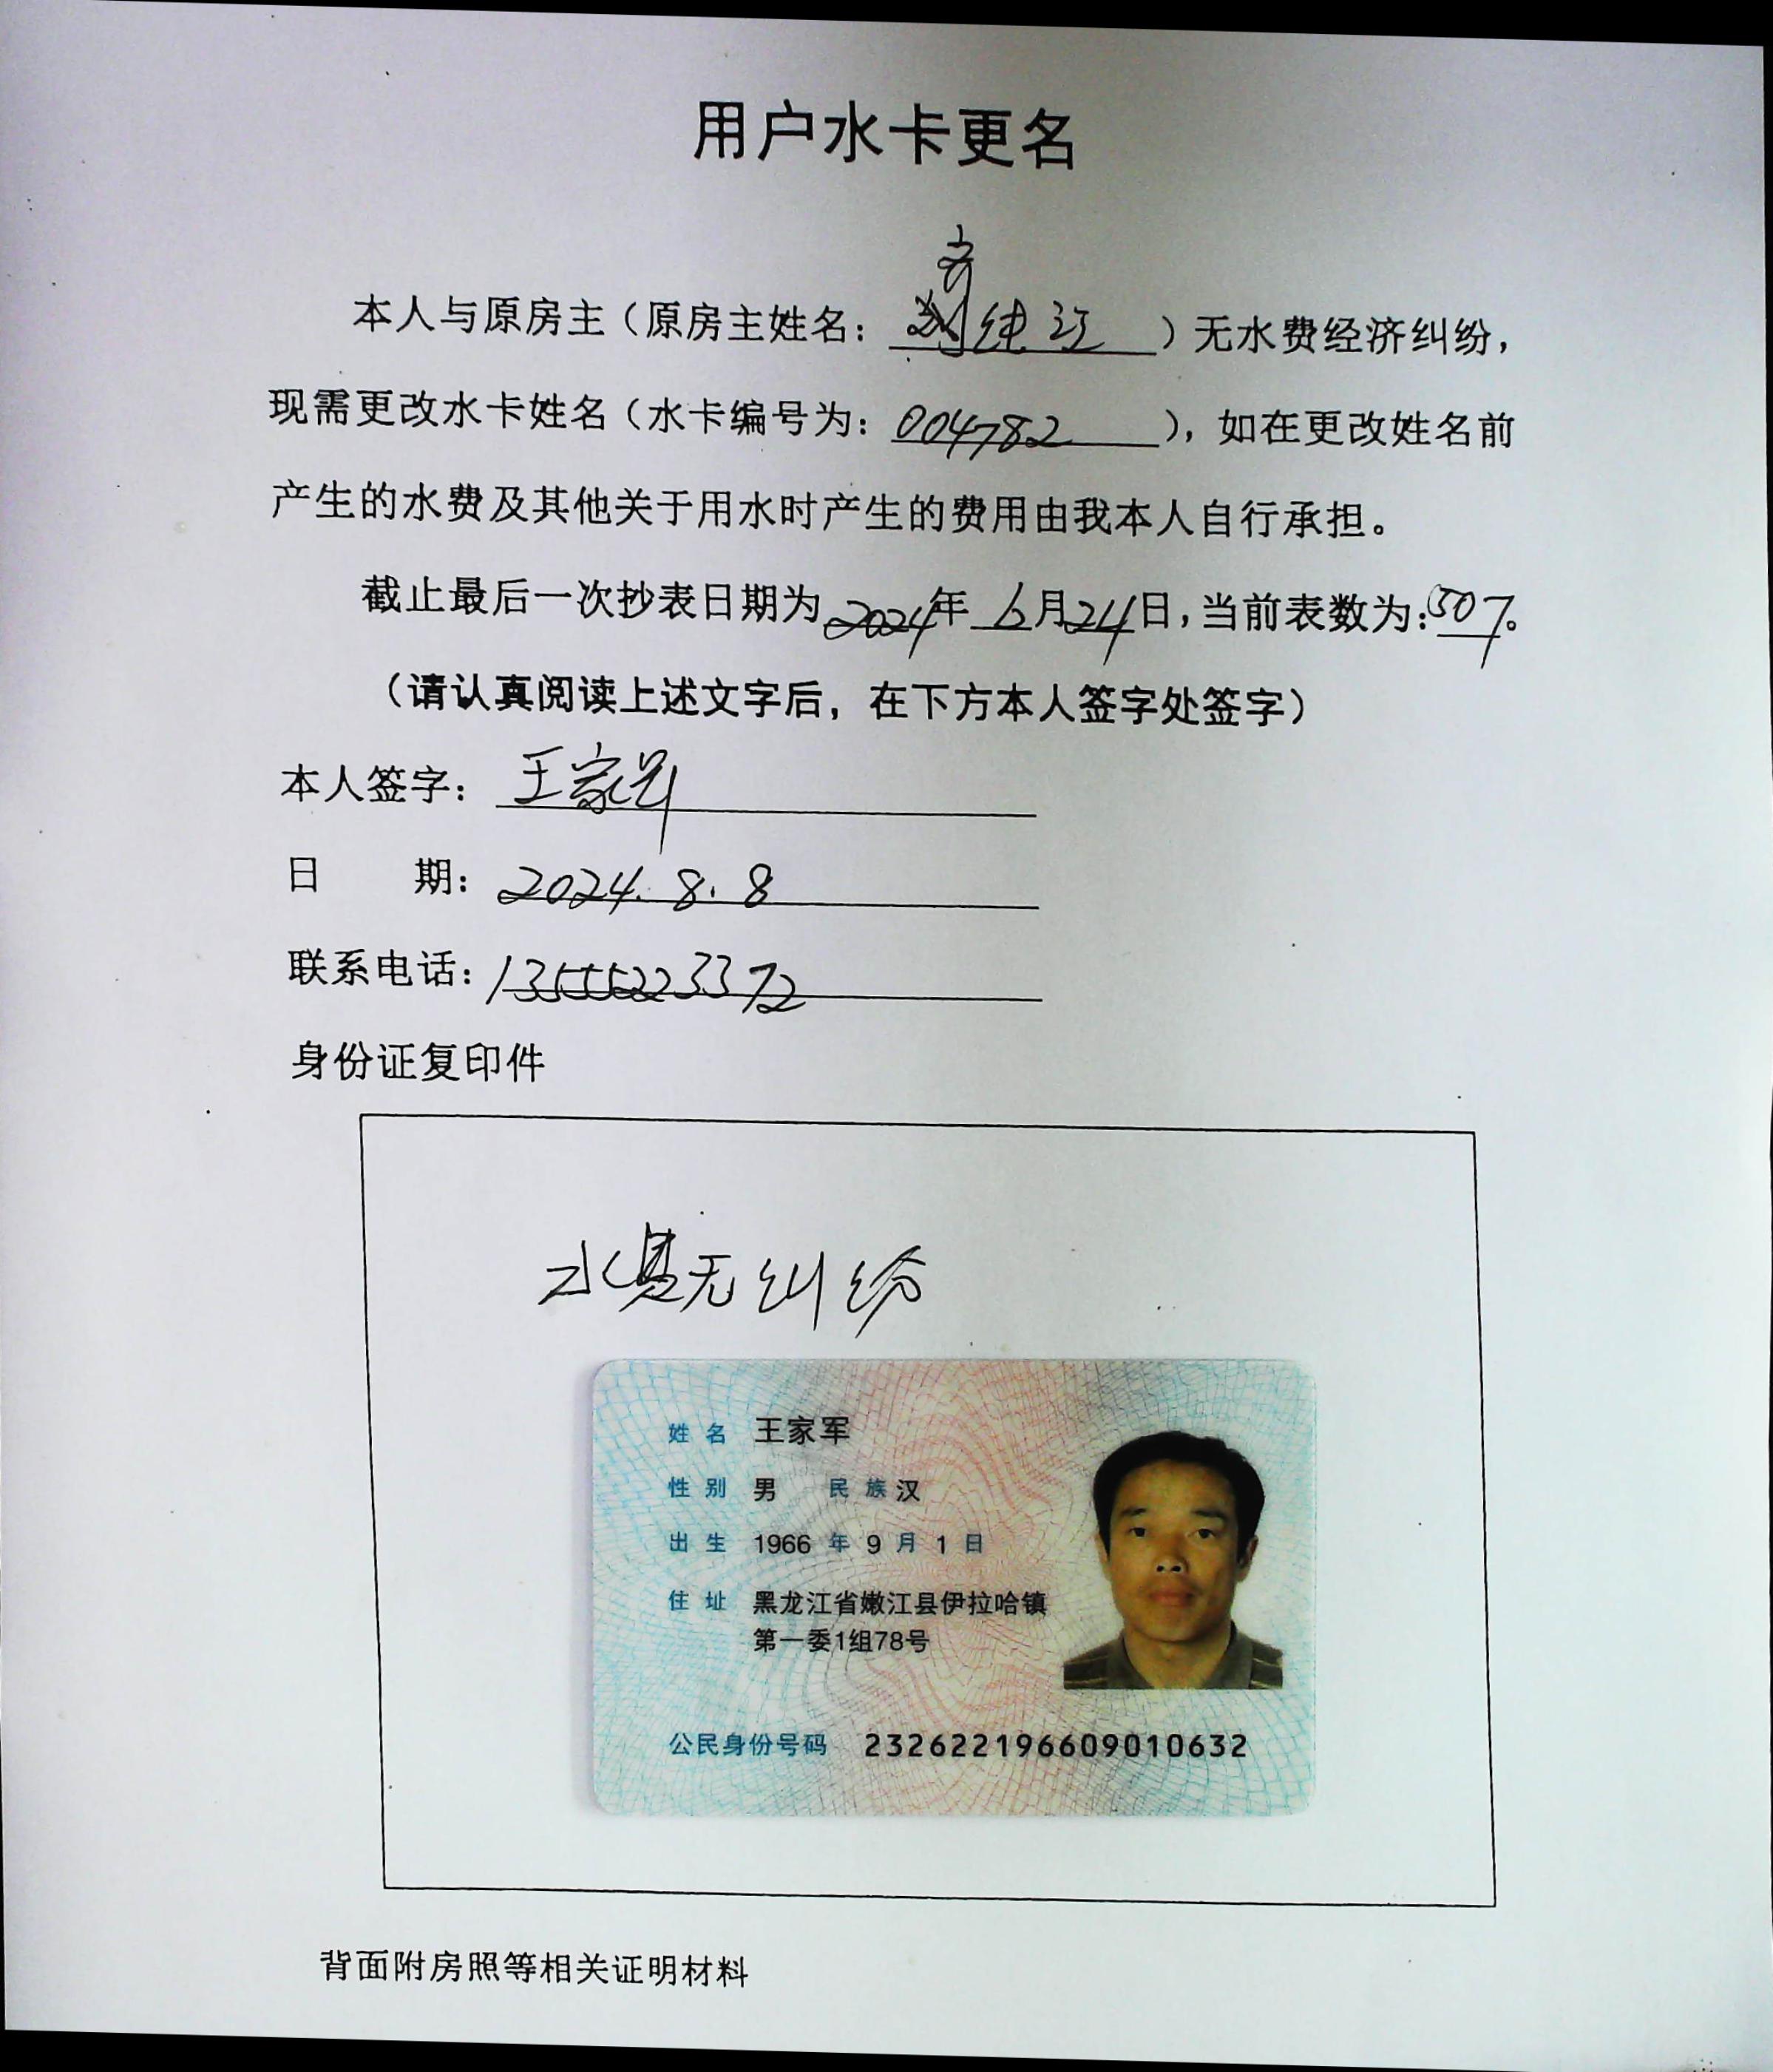 用户水卡更名
本人与原房主（原房主姓名：纯江）无水费经济纠纷，
现需更改水卡姓名（水卡编号为：004782），如在更改姓名前
产生的水费及其他关于用水时产生的费用由我本人自行承担。
截止最后一次抄表日期为2024年6月24日，当前表数为：507。
（请认真阅读上述文字后，在下方本人签字处签字）
本人签字：王家军
日 期：2024.8.8
联系电话：13555223372
身份证复印件
水费无纠纷
姓名 王家军
性别 男 民族 汉
出生 1966 年 9 月 1 日
住址 黑龙江省嫩江县伊拉哈镇
第一委1组78号
公民身份号码 232622196609010632
背面附房照等相关证明材料